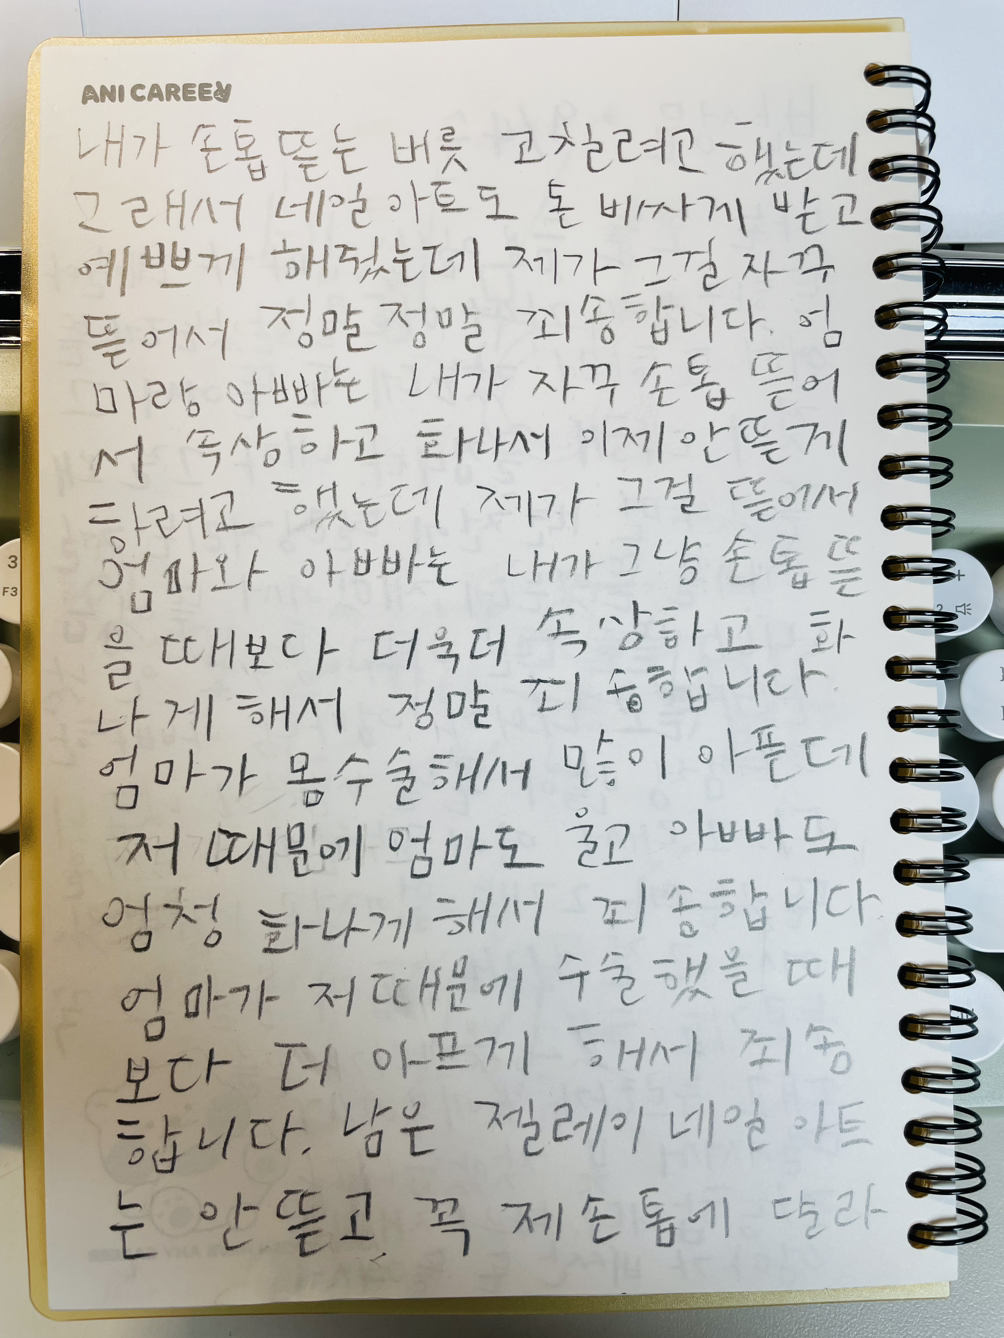 ANI CAREER
내가 손톱뜯는 버릇 고칠려고 했는데
그래서 네일아트도 돈 비싸게 받고
예쁘게 해줬는데 제가 그걸 자꾸
뜯어서 정말 정말 죄송합니다. 엄
마랑 아빠는 내가 자꾸 손톱 뜯어
서 속상하고 화나서 이제 안뜯게
하려고 했는데 제가 그걸 뜯에서
엄마와 아빠는 내가 그냥 손톱 뜯
을 때보다 더욱더 속상하고 화
나게 해서 정말 죄송합니다.
엄마가 몸수술해서 많이 아픈데
저 때문에 엄마도 울고 아빠도
엄청 화나게 해서 죄송합니다.
엄마가 저때문에 수술했을 때
보다 더 아프게 해서 죄송
합니다. 남은 젤레이 네일 아트
는 안 뜯고, 꼭 제손톱에 달라
3
F3
+
2